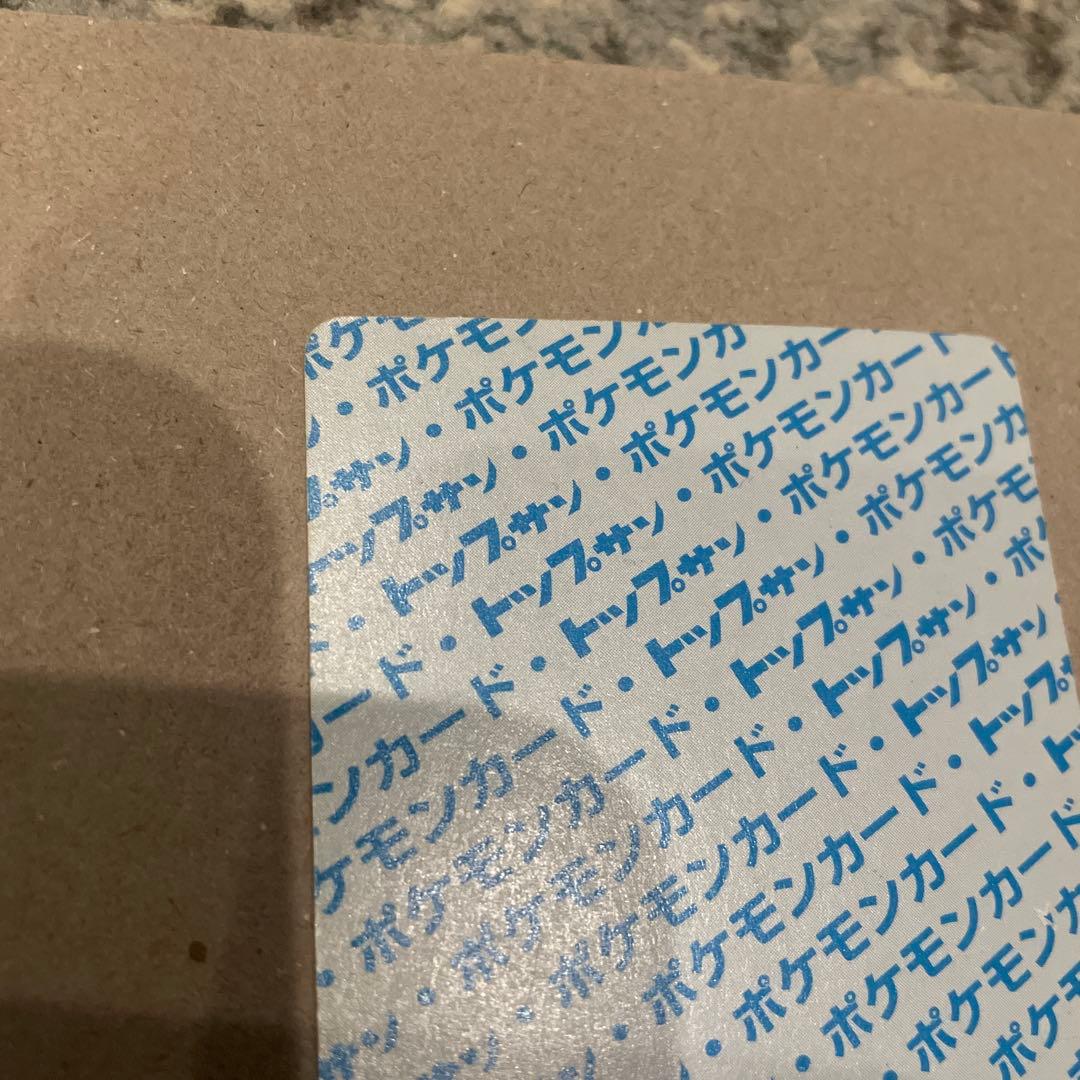 ポケモ
・ポケモン
・ポケモンカ
トップサン・ポケモンカ
トップサン・ポケモンカー
・トップサン・ポケモンカード
ド・トップサン・ポケモンカード
カード・トップサン・ポケモンカ
ンカード・トップサン・ポケモ
ケモンカード・トップサン・ポ
・ポケモンカード・トップサン
・ポケモンカード・トップサン
サン・ポケモンカード・トップ
トップサン・ポケモンカード・ト
・ポケモンカード
・ポケモンカ
・ポケモ
ポケ